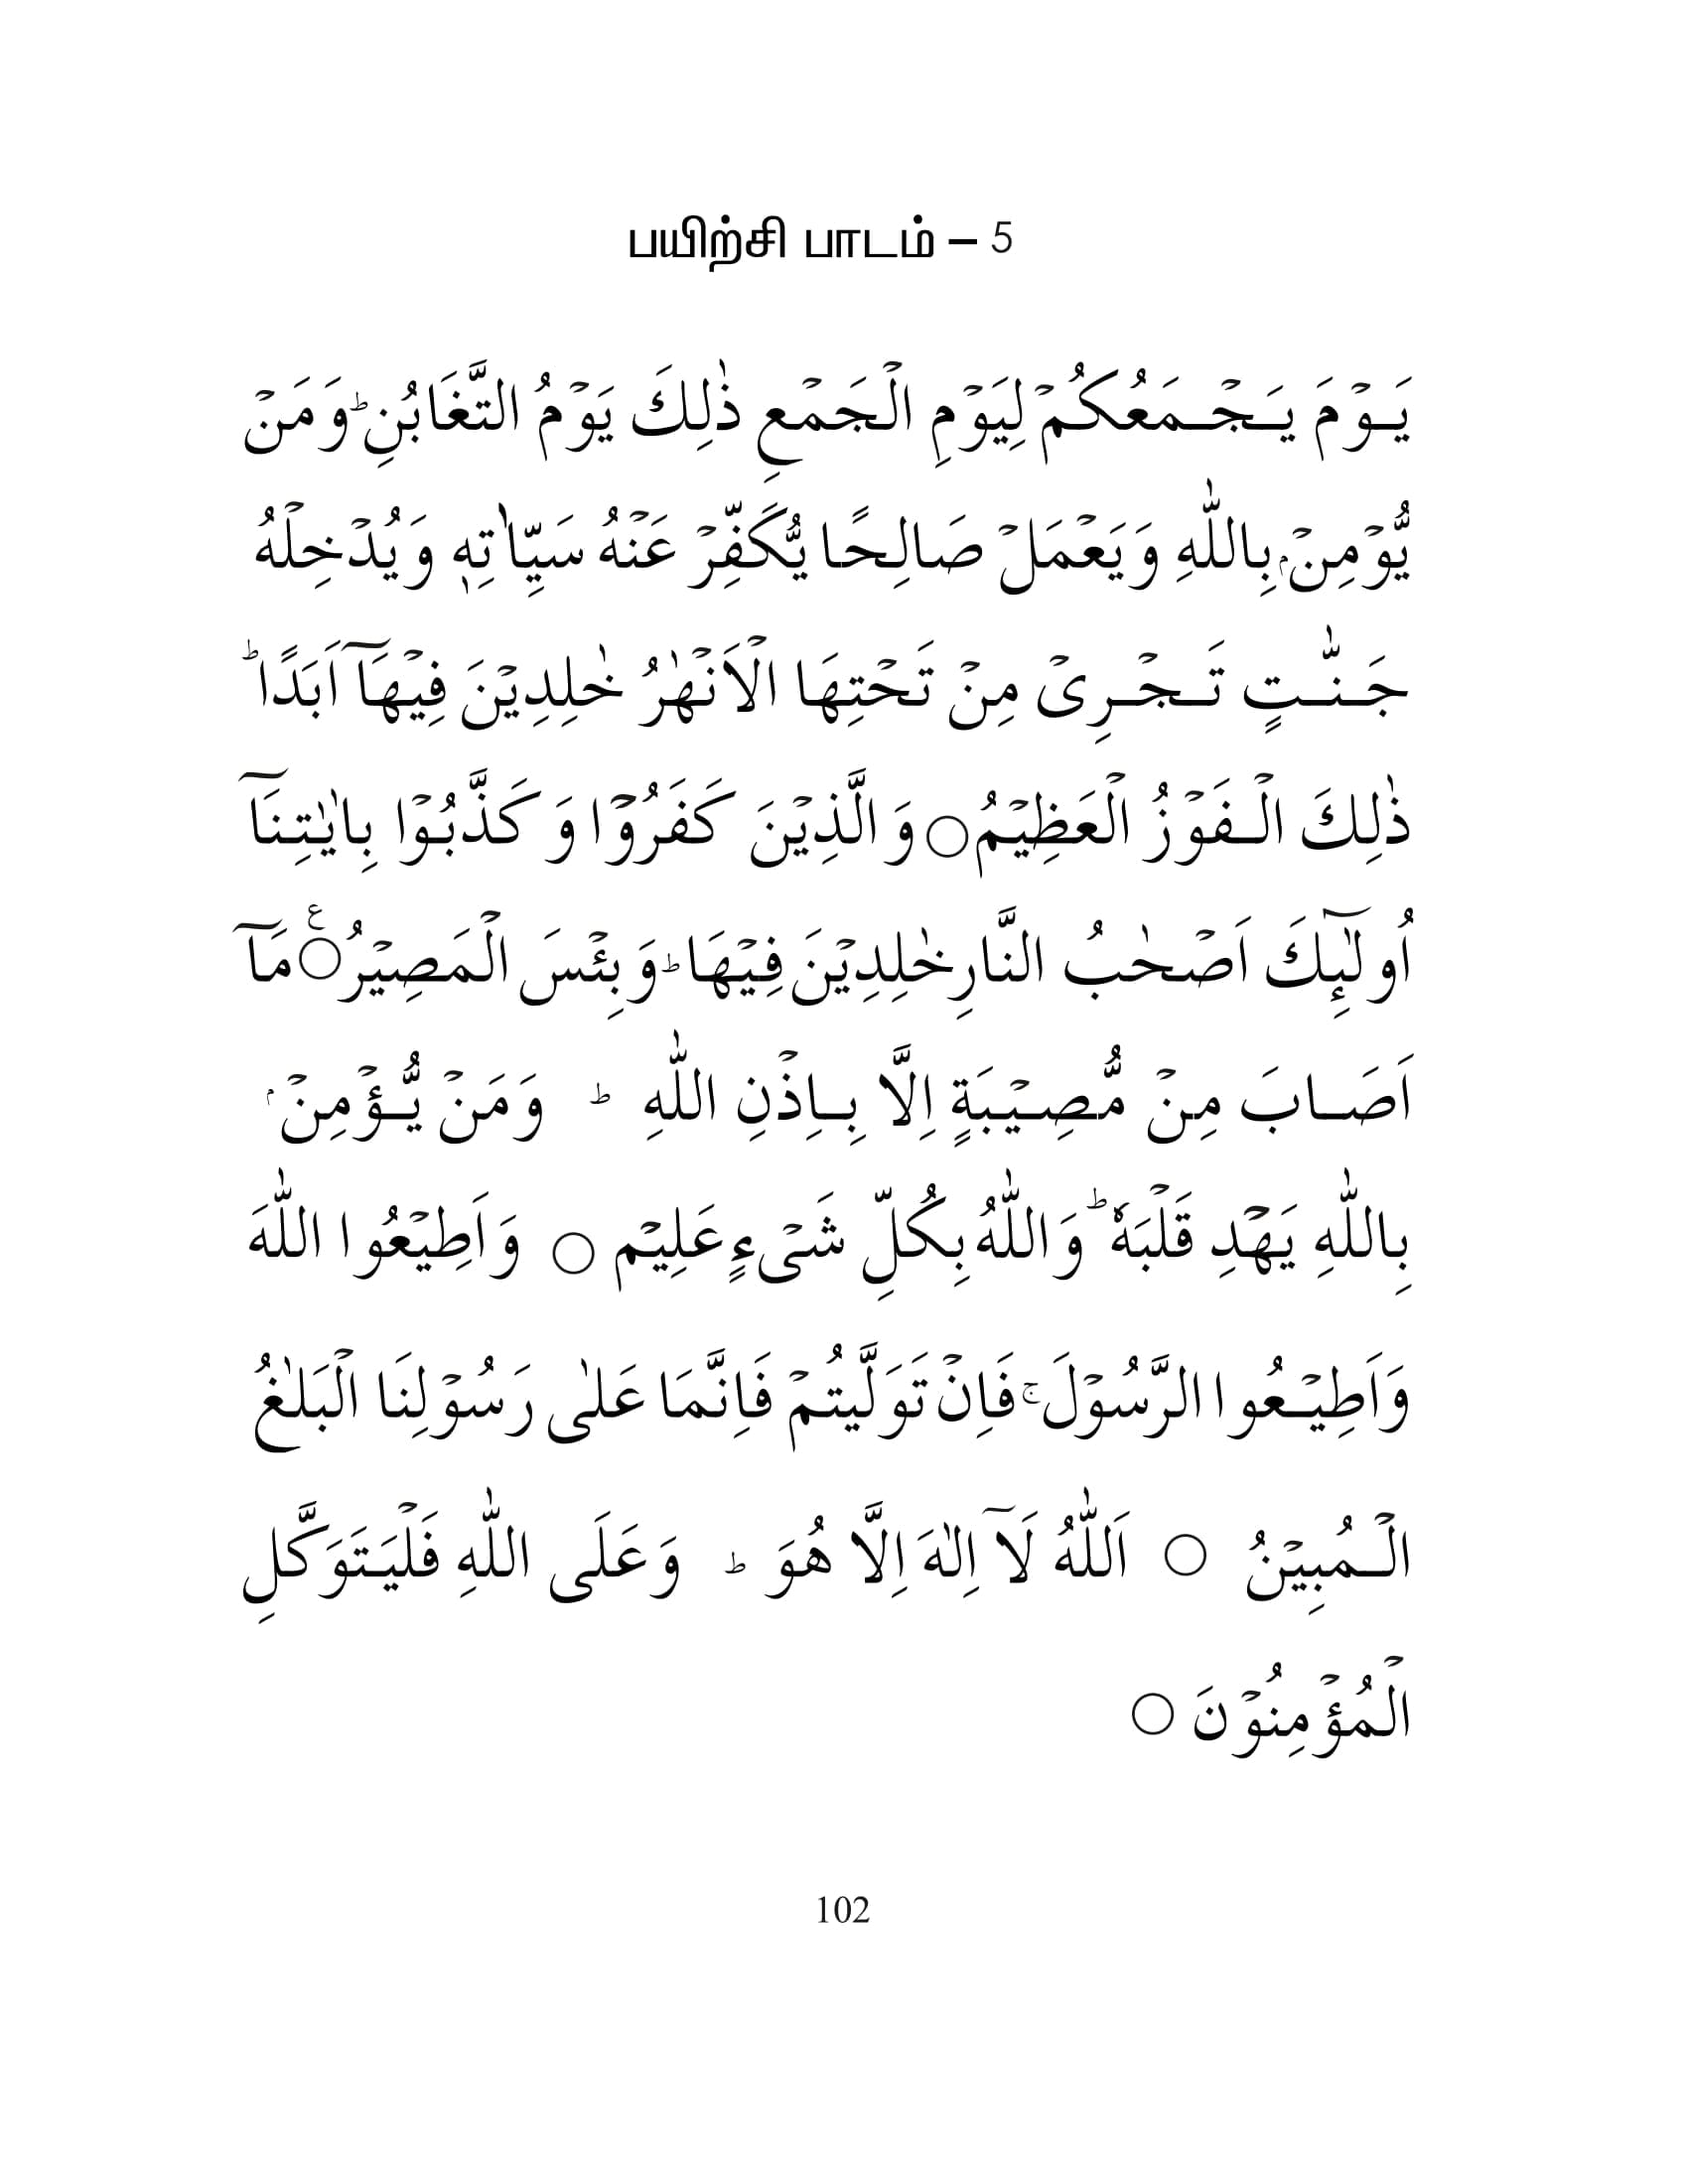 பயிற்சி பாடம் – 5
يَـوْمَ يَـجْـمَعُكُمْ لِيَوْمِ الْجَمْعِ ذٰلِكَ يَوْمُ التَّغَابُنِ ؕ وَمَنْ
يُّوْمِنْ ۢ بِاللّٰهِ وَيَعْمَلْ صَالِحًا يُّكَفِّرْ عَنْهُ سَيِّاٰتِهٖ وَيُدْخِلْهُ
جَـنّٰـتٍ تَـجْـرِىْ مِنْ تَحْتِهَا الْاَنْهٰرُ خٰلِدِيْنَ فِيْهَآ اَبَدًا ؕ
ذٰلِكَ الْـفَوْزُ الْعَظِيْمُ○ وَالَّذِيْنَ كَفَرُوْا وَ كَذَّبُوْا بِاٰيٰتِنَآ
اُولٰٓئِكَ اَصْحٰبُ النَّارِ خٰلِدِيْنَ فِيْهَا ؕ وَبِئْسَ الْمَصِيْرُ○ۧ مَآ
اَصَـابَ مِنْ مُّصِيْبَةٍ اِلَّا بِـاِذْنِ اللّٰهِ ؕ وَمَنْ يُّـؤْمِنْ ۢ
بِاللّٰهِ يَهْدِ قَلْبَهٗ ؕ وَاللّٰهُ بِكُلِّ شَىْءٍ عَلِيْم ○ وَاَطِيْعُوا اللّٰهَ
وَاَطِيْـعُوا الرَّسُوْلَ ۚ فَاِنْ تَوَلَّيتُمْ فَاِنَّمَا عَلٰى رَسُوْلِنَا الْبَلٰغُ
الْـمُبِيْنُ ○ اَللّٰهُ لَآ اِلٰهَ اِلَّا هُوَ ؕ وَعَلَى اللّٰهِ فَلْيَتَوَكَّلِ
الْمُؤْمِنُوْنَ ○
102